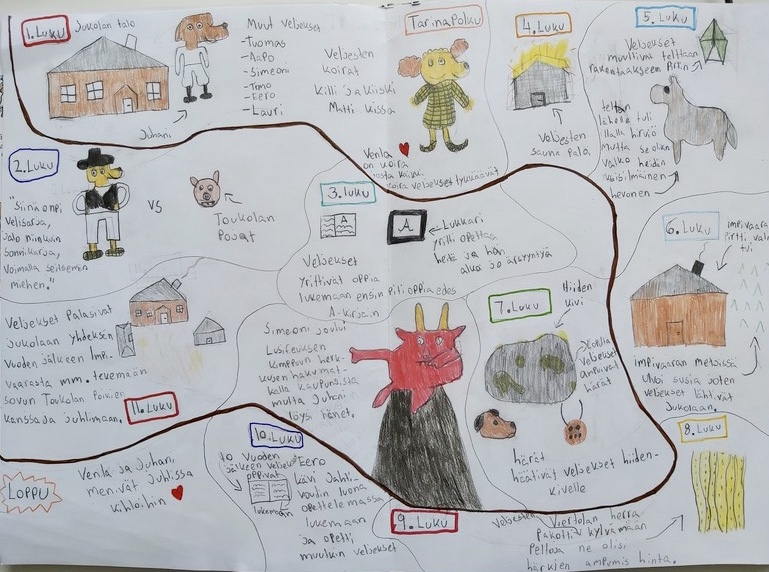 1. Luku
Jukolan talo
Juhani
Muut veljekset
-Tuomas
-Aapo
-Simeoni
-Timo
-Eero
-Lauri
Veljesten
koirat
Killi ja Kiiski
Matti Kissa
TarinaPolku
Venla
on koira
josta kaikki
koira veljekset tykkäävät
4. Luku
Veljesten
sauna palo
5. Luku
Veljekset
teltan
lähelle tuli
illalla hirviö
Mutta se olikin
valko heidän
hevonen
2. Luku
"Siinä onpi
velisarja,
jalo niinkuin
voimalla seitsemän
miehen."
VS
Toukolan
Pojat
3. Luku
A
A
Lukkari
yritti opettaa
heitä ja hän
alkoi jo ärsyyntyä
Veljekset
yrittivät oppia
lukemaan ensin piti oppia edes
A-kirjain
6. Luku
impivaara
pirtti
impivaaran metsissä
ulvoi susia joten
veljekset lähtivät
Jukolaan.
7. Luku
Hiiden
kivi
veljekset
ampuivat
härät
härät
häätivät veljekset hiiden-
kivelle
8. Luku
Viertolan herra
Pakotti veljesten kylvämään
Peltoja ne olisi
härkien ampumis hinta.
9. Luku
Simeoni joutui
Lusifeuksen
kimppuun herk-
kujen hakumat-
kalla kaupungista
mutta Juhani
löysi hänet.
10. Luku
10 vuoden
jälkeen veljekset
oppivat
lukemaan
Eero
kävi Jahti-
voudin luona
opettelemassa
lukemaan
ja opetti
muutkin veljekset
11. Luku
Veljekset Palasivat
Jukolaan yhdeksän
vuoden jälkeen Impi-
vaarasta mm. tekemään
sovun Toukolan Poikien
kanssa ja juhlimaan.
LOPPU
Venla ja Juhani
menivät juhlissa
kihloihin